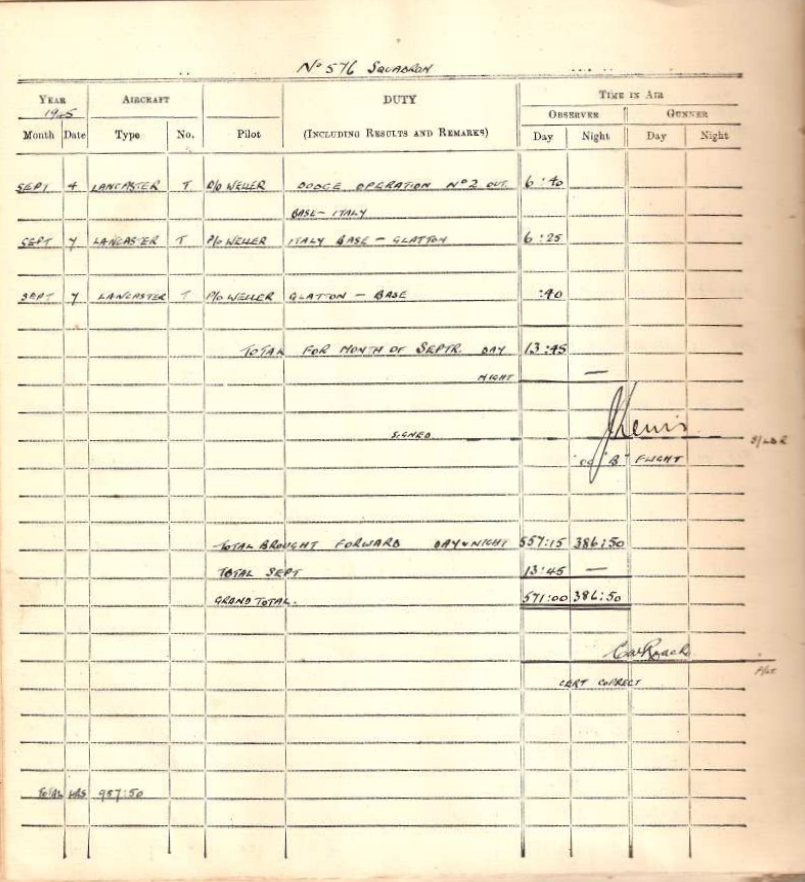 No 576 SQUADRON
YEAR AIRCRAFT DUTY TIME IN AIR
1945 OBSERVER GUNNER
Month Date Type No. Pilot (INCLUDING RESULTS AND REMARKS) Day Night Day Night
SEPT 4 LANCASTER T P/O WELLER DODGE OPERATION No 2 OUT. 6:40
BASE - ITALY
SEPT 7 LANCASTER T P/O WELLER ITALY BASE - GLATTON 6:25
SEPT 7 LANCASTER T P/O WELLER GLATTON - BASE :40
TOTAL FOR MONTH OF SEPTR. DAY 13:45
NIGHT —
SIGNED S/LDR
OC "B" FLIGHT
TOTAL BROUGHT FORWARD DAY & NIGHT 557:15 386:50
TOTAL SEPT 13:45 —
GRAND TOTAL. 571:00 386:50
F/LT
CERT CORRECT
TOTAL HRS 957:50